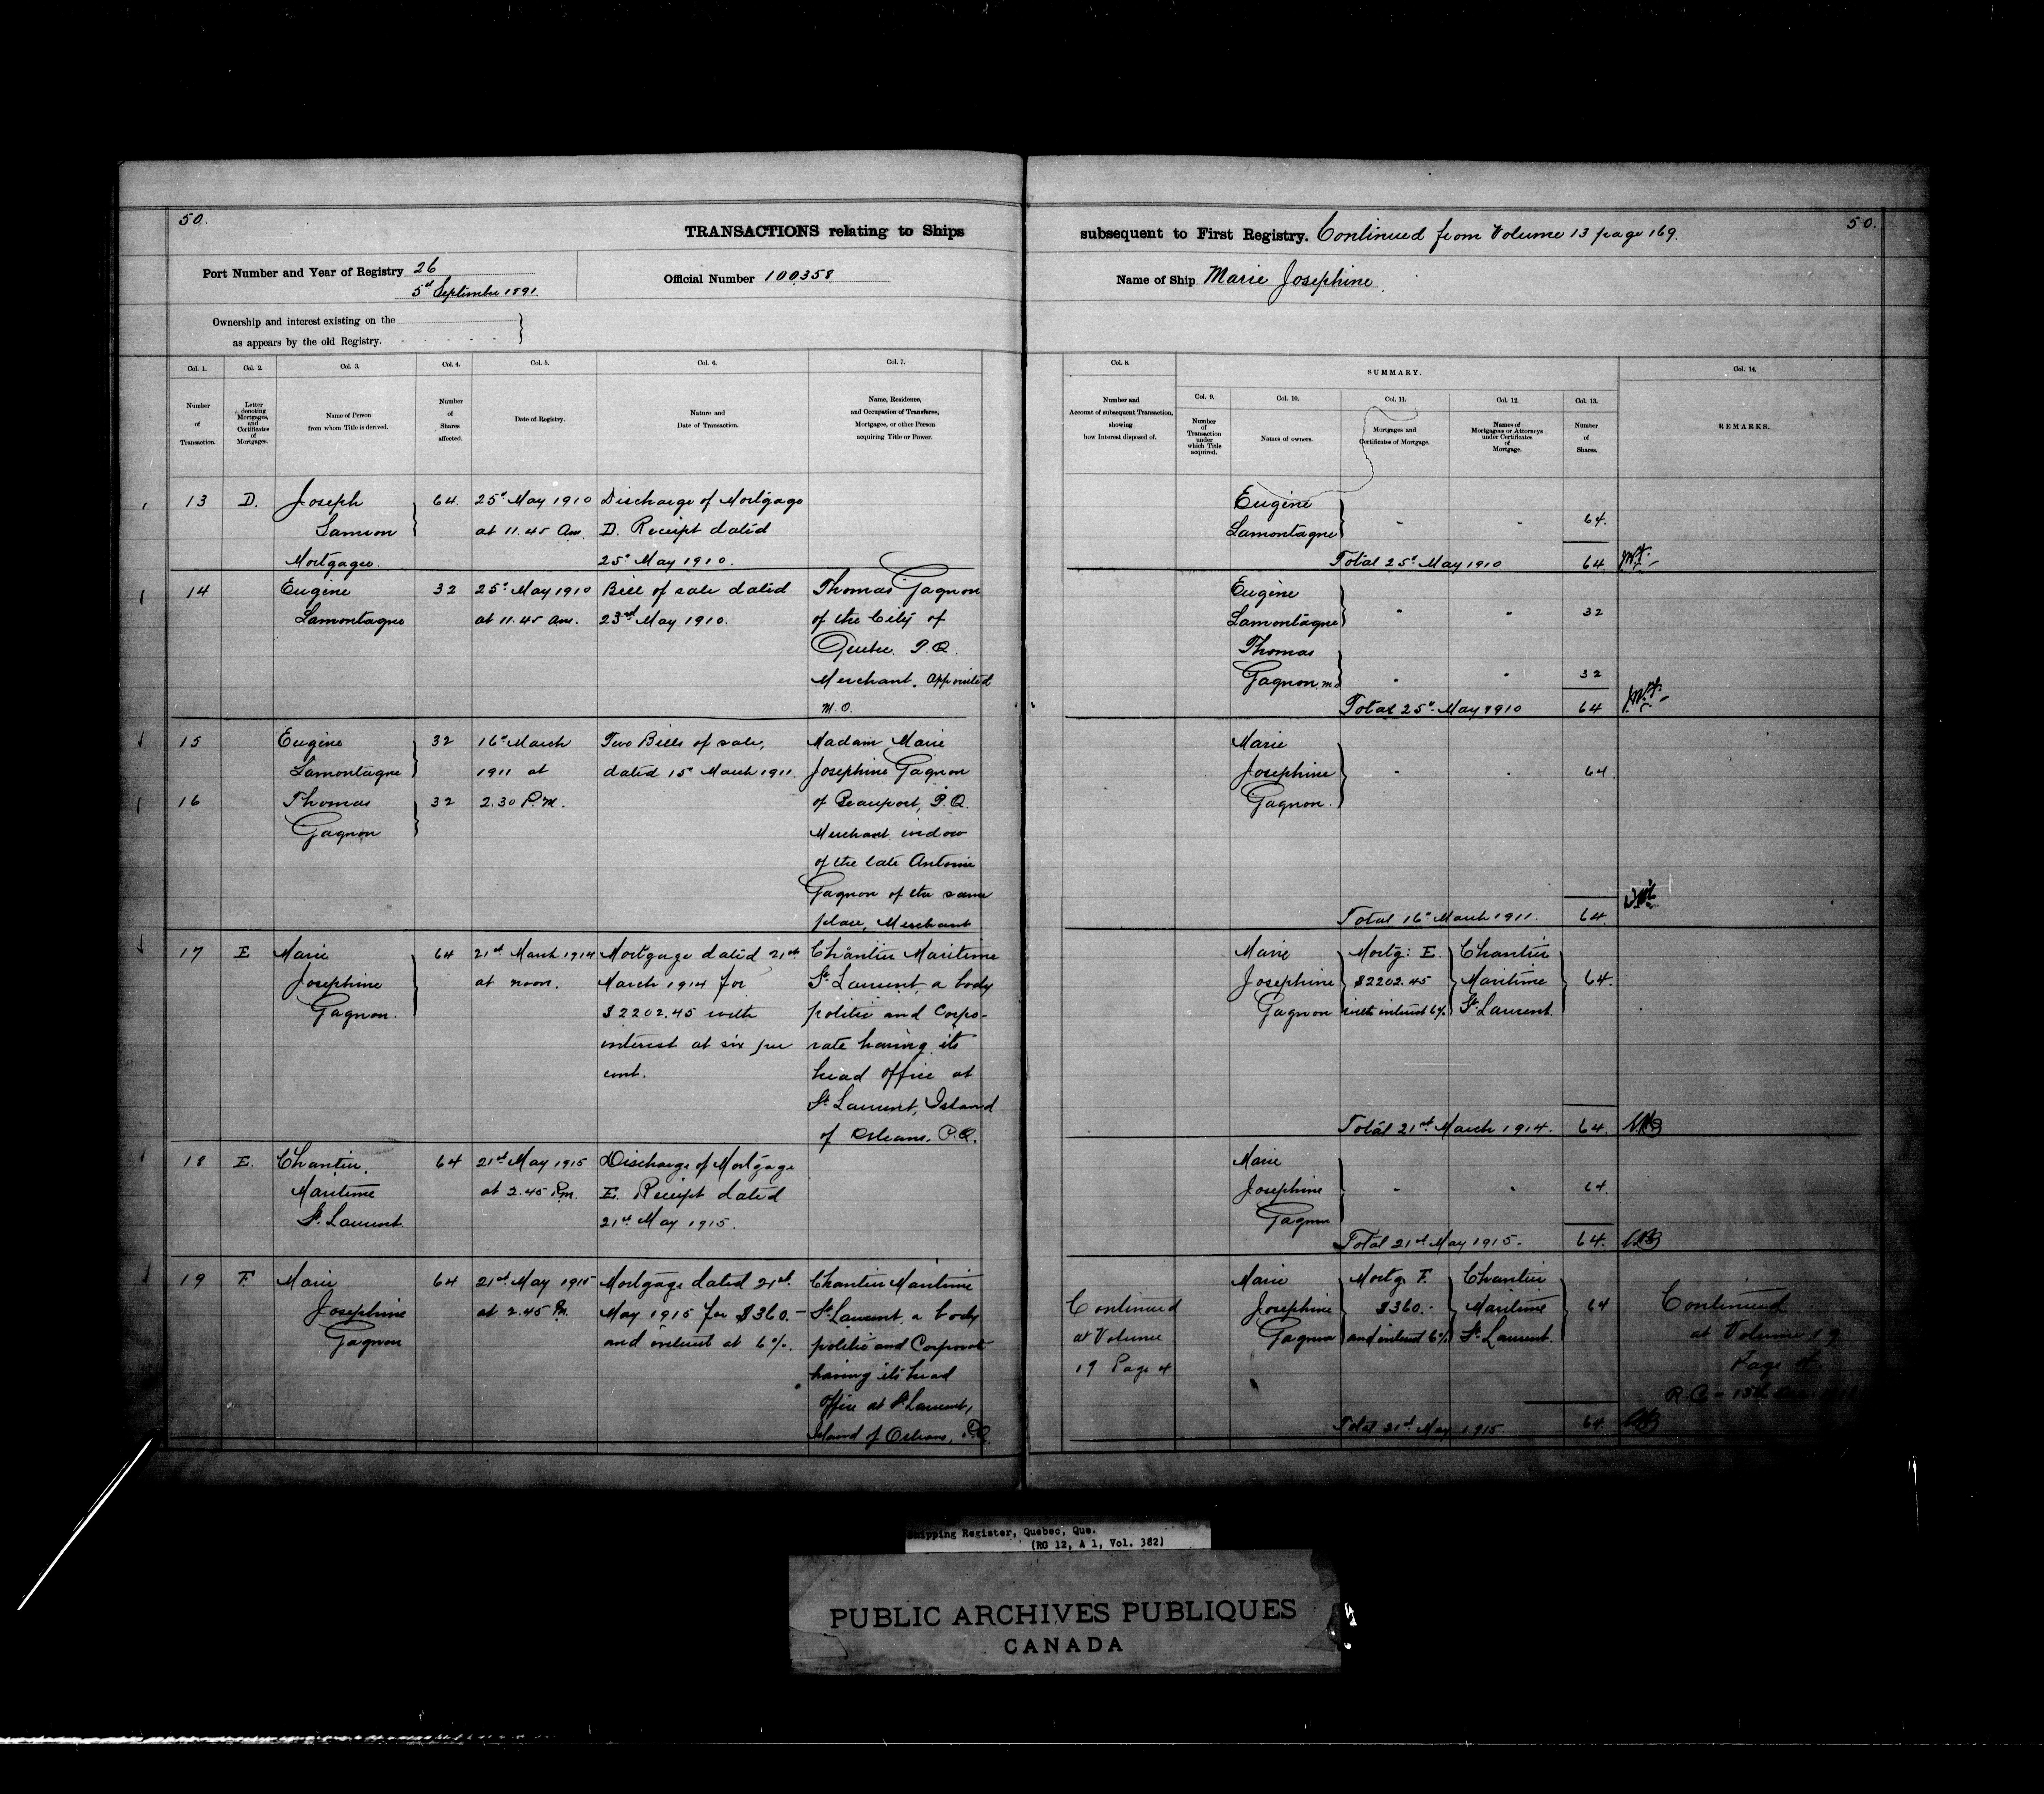 50.
TRANSACTIONS relating to Ships
Port Number and Year of Registry 26
5th September 1891.
Official Number 100358
Ownership and interest existing on the
as appears by the old Registry.
Col. 1.
Number
of
Transaction.
Col. 2.
Letter
denoting
Mortgages,
and
Certificates
of
Mortgages.
Col. 3.
Name of Person
from whom Title is derived.
Col. 4.
Number
of
Shares
affected.
Col. 5.
Date of Registry.
Col. 6.
Nature and
Date of Transaction.
Col. 7.
Name, Residence,
and Occupation of Transferee,
Mortgagee, or other Person
acquiring Title or Power.
13 D. Joseph 64. 25th May 1910 Discharge of Mortgage
Samson at 11.45 Am. D. Receipt dated
Mortgagee. 25th May 1910.
14 Eugène 32 25th May 1910 Bill of sale dated Thomas Gagnon
Lamontagne at 11.45 am. 23rd May 1910. of the City of
Quebec. P.Q.
Merchant, appointed
M.O.
15 Eugène 32 16th March Two Bills of sale, Madam Marie
Lamontagne 1911 at dated 15th March 1911. Josephine Gagnon
16 Thomas 32 2.30 P.M. of Beauport, P.Q.
Gagnon Merchant widow
of the late Antoine
Gagnon of the same
place, Merchant
17 E Marie 64 21st March 1914 Mortgage dated 21st Chantier Maritime
Josephine at noon. March 1914 for St. Laurent, a body
Gagnon. $2202.45 with politic and Corpo-
interest at six per rate having its
cent. head office at
St. Laurent, Island
of Orleans. P.Q.
18 E. Chantier 64 21st May 1915 Discharge of Mortgage
Maritime at 2.45 P.m. E. Receipt dated
St. Laurent. 21st May 1915.
19 F. Marie 64 21st May 1915 Mortgage dated 21st Chantier Maritime
Josephine at 2.45 P.M. May 1915 for $360.- St. Laurent, a body
Gagnon and interest at 6%. politic and Corporate
having its head
office at St. Laurent,
Island of Orleans, P.Q.
50.
subsequent to First Registry. Continued from Volume 13 page 169.
Name of Ship Marie Josephine.
Col. 8.
Number and
Account of subsequent Transaction,
showing
how Interest disposed of.
SUMMARY.
Col. 9.
Number
of
Transaction
under
which Title
acquired.
Col. 10.
Names of owners.
Col. 11.
Mortgages and
Certificates of Mortgage.
Col. 12.
Names of
Mortgagees or Attorneys
under Certificates
of
Mortgage.
Col. 13.
Number
of
Shares.
Col. 14.
REMARKS.
Eugène
Lamontagne - - 64.
Total 25th May 1910 64
Eugène
Lamontagne - - 32
Thomas
Gagnon, M.O. - - 32
Total 25th May 1910 64
Marie
Josephine - - 64.
Gagnon.
Total 16th March 1911. 64
Marie Mortg: E. Chantier
Josephine $2202.45 Maritime 64.
Gagnon with interest 6% St. Laurent.
Total 21st March 1914. 64.
Marie
Josephine - - 64.
Gagnon
Total 21st May 1915. 64.
Marie Mortg. F. Chantier
Continued Josephine $360.- Maritime 64 Continued
at Volume Gagnon and interest 6% St. Laurent. at Volume 19
19 Page 4 Page 4
Total 21st May 1915. 64.
Shipping Register, Quebec, Que.
(RG 12, A 1, Vol. 382)
PUBLIC ARCHIVES PUBLIQUES
CANADA